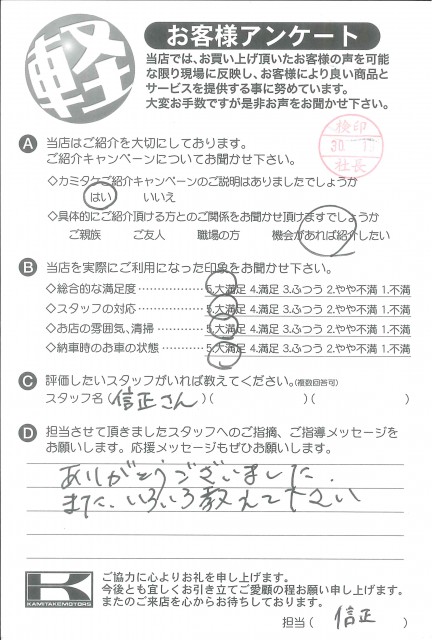 軽
お客様アンケート
当店では、お買い上げ頂いたお客様の声を可能
な限り現場に反映し、お客様により良い商品と
サービスを提供する事に努めています。
大変お手数ですが是非お声をお聞かせ下さい。
検印
30.
社長
A 当店はご紹介を大切にしております。
ご紹介キャンペーンについてお聞かせ下さい。
◇カミタケご紹介キャンペーンのご説明はありましたでしょうか
はい いいえ
◇具体的にご紹介頂ける方とのご関係をお聞かせ頂けますでしょうか
ご親族 ご友人 職場の方 機会があれば紹介したい
B 当店を実際にご利用になった印象をお聞かせ下さい。
◇総合的な満足度……………5.大満足 4.満足 3.ふつう 2.やや不満 1.不満
◇スタッフの対応……………5.大満足 4.満足 3.ふつう 2.やや不満 1.不満
◇お店の雰囲気、清掃………5.大満足 4.満足 3.ふつう 2.やや不満 1.不満
◇納車時のお車の状態………5.大満足 4.満足 3.ふつう 2.やや不満 1.不満
C 評価したいスタッフがいれば教えてください。(複数回答可)
スタッフ名(信正さん)( )( )
D 担当させて頂きましたスタッフへのご指摘、ご指導メッセージを
お願いします。応援メッセージもぜひお願いします。
ありがとうございました.
また、いろいろ教えて下さい
K
KAMITAKEMOTORS
ご協力に心よりお礼を申し上げます。
今後とも宜しくお引き立てご愛顧の程お願い申し上げます。
またのご来店を心からお待ちしております。
担当( 信正 )